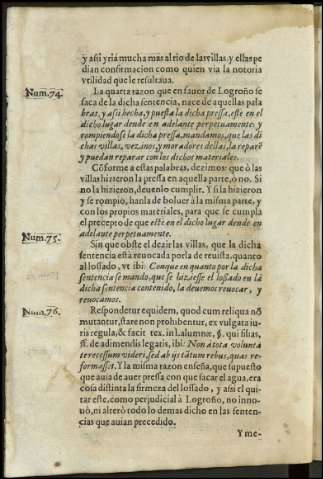 y assi yria mucha mas al rio de las villas, y ellas pe
dian confirmacion como quien via la notoria
vtilidad que le resultaua.
Num. 74.
La quarta razon que en fauor de Logroño se
saca de la dicha sentencia, nace de aquellas pala
bras, y assi hecha, y puesta la dicha pressa, estè en el
dicho lugar dende en adelante perpetuamente, y
rompiendose la dicha pressa, mandamos, que las di
chas villas, vezinos, y moradores dellas, la reparẽ
y puedan reparar con los dichos materiales.
Cõforme a estas palabras, dezimos que ò las
villas hizieron la pressa en aquella parte, ò no. Si
no la hizieron, deuenlo cumplir. Y si la hizieron
y se rompio, hanla de boluer à la misma parte, y
con los propios materiales, para que se cumpla
el precepto de que estè en el dicho lugar dende en
adelante perpetuamente.
Num. 75.
Sin que obste el dezir las villas, que la dicha
sentencia està reuocada por la de reuista, quanto
al lossado, vt ibi: Conque en quanto por la dicha
sentencia se mando, que se hiziesse el lossado en la
dicha sentencia contenido, la deuemos reuocar, y
reuocamos.
Num. 76.
Respondetur equidem, quod cum reliqua nõ
mutantur, stare non prohibentur, ex vulgata iu-
ris regula, & facit tex. in l. alumnæ, §. qui filias,
ff. de adimendis legatis, ibi: Non à tota volunta
te recessum videri, sed ab ijs tãtum rebus, quas re-
formasset. Y la misma razon enseña, que supuesto
que auia de auer pressa con que sacar el agua, era
cosa distinta la firmeza del lossado, y assi el qui
tar este, como perjudicial à Logroño, no inno-
uò, ni alterò todo lo demas dicho en las senten-
cias que auian precedido.
Y me-